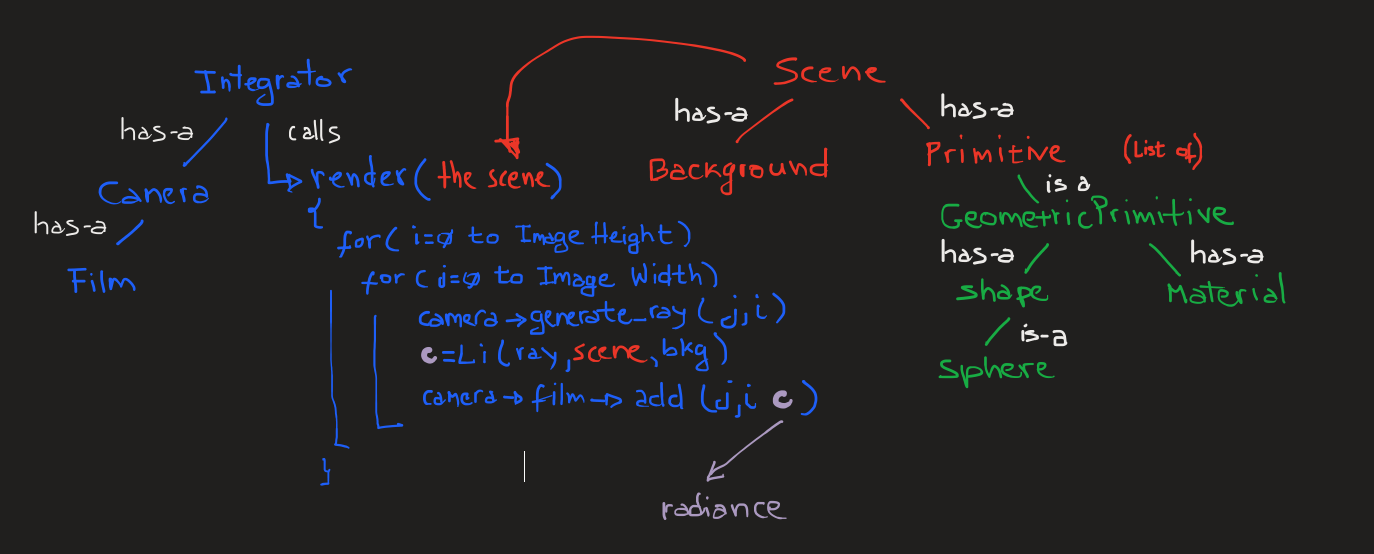 Integrator
has-a
calls
Canera
has-a
Film
render(the scene)
{
for(i=0 to Image Height)
for(j=0 to Image Width)
camera→generate_ray(j,i)
c=Li(ray,scene,bkg)
camera→film→add(j,i c)
}
radiance
Scene
has-a
has-a
Background
Primitive (List of)
is a
GeometricPrimitive
has-a
has-a
shape
Material
is-a
Sphere